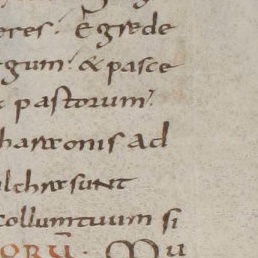 eres. Egrede
gum. & pasce
pastorum.
haraonis ad
lchrae sunt
collum tuum si
ORŪ. Mu